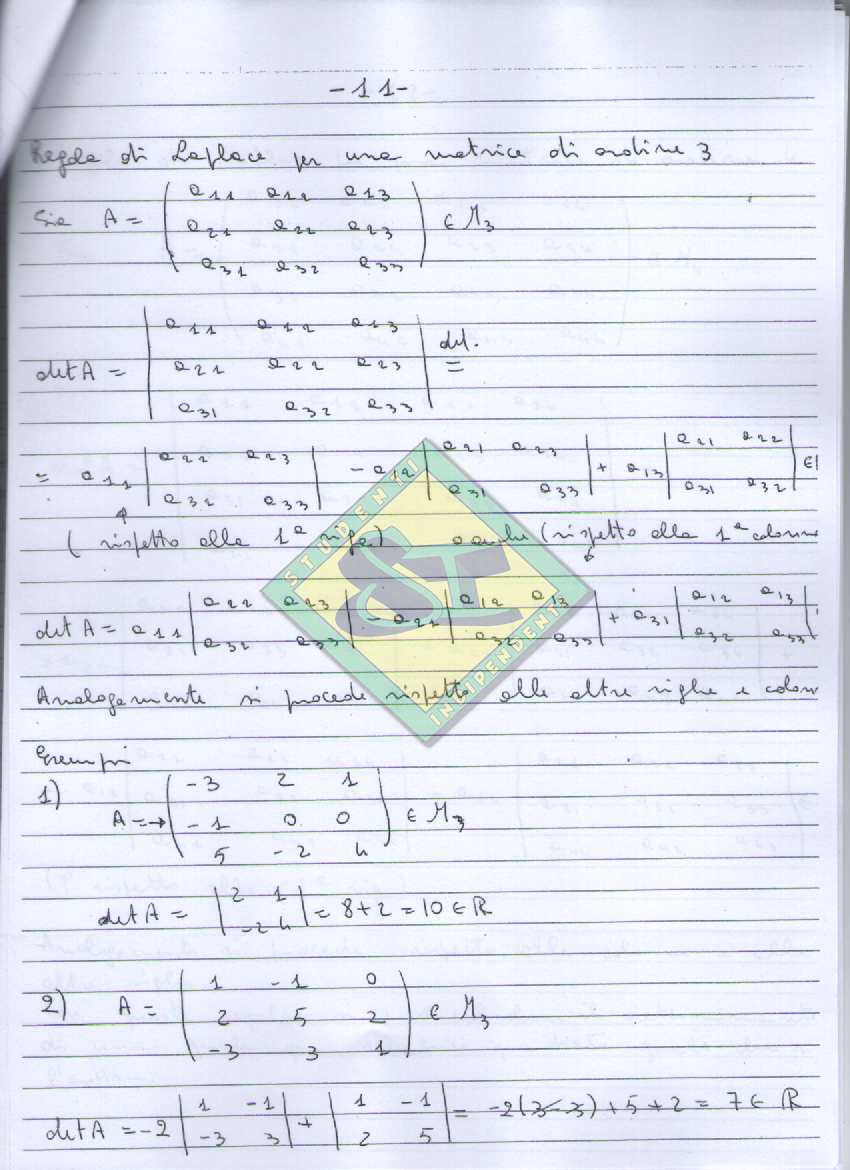 -11-
Regola di Laplace per una matrice di ordine 3
Sia A = ( a11 a12 a13
a21 a22 a23
a31 a32 a33 ) ∈ M3
det A = | a11 a12 a13
a21 a22 a23
a31 a32 a33 | def. =
= a11 | a22 a23 | - a12 | a21 a23 | + a13 | a21 a22 | ∈
a32 a33 a31 a33 a31 a32
( rispetto alla 1ª riga) o anche (rispetto alla 1ª colonna
det A = a11 | a22 a23 | - a21 | a12 a13 | + a31 | a12 a13 |
a32 a33 a32 a33 a32 a33
Analogamente si procede rispetto alle altre righe e colon
Esempi
1) A = → ( -3 2 1
-1 0 0
5 -2 4 ) ∈ M3
det A = | 2 1 | = 8+2 = 10 ∈ R
-2 4
2) A = ( 1 -1 0
2 5 2
-3 3 1 ) ∈ M3
det A = -2 | 1 -1 | + | 1 -1 | = -2(3-3)+5+2 = 7 ∈ R
-3 3 2 5
STUDENTI
SI
INDIPENDENTI